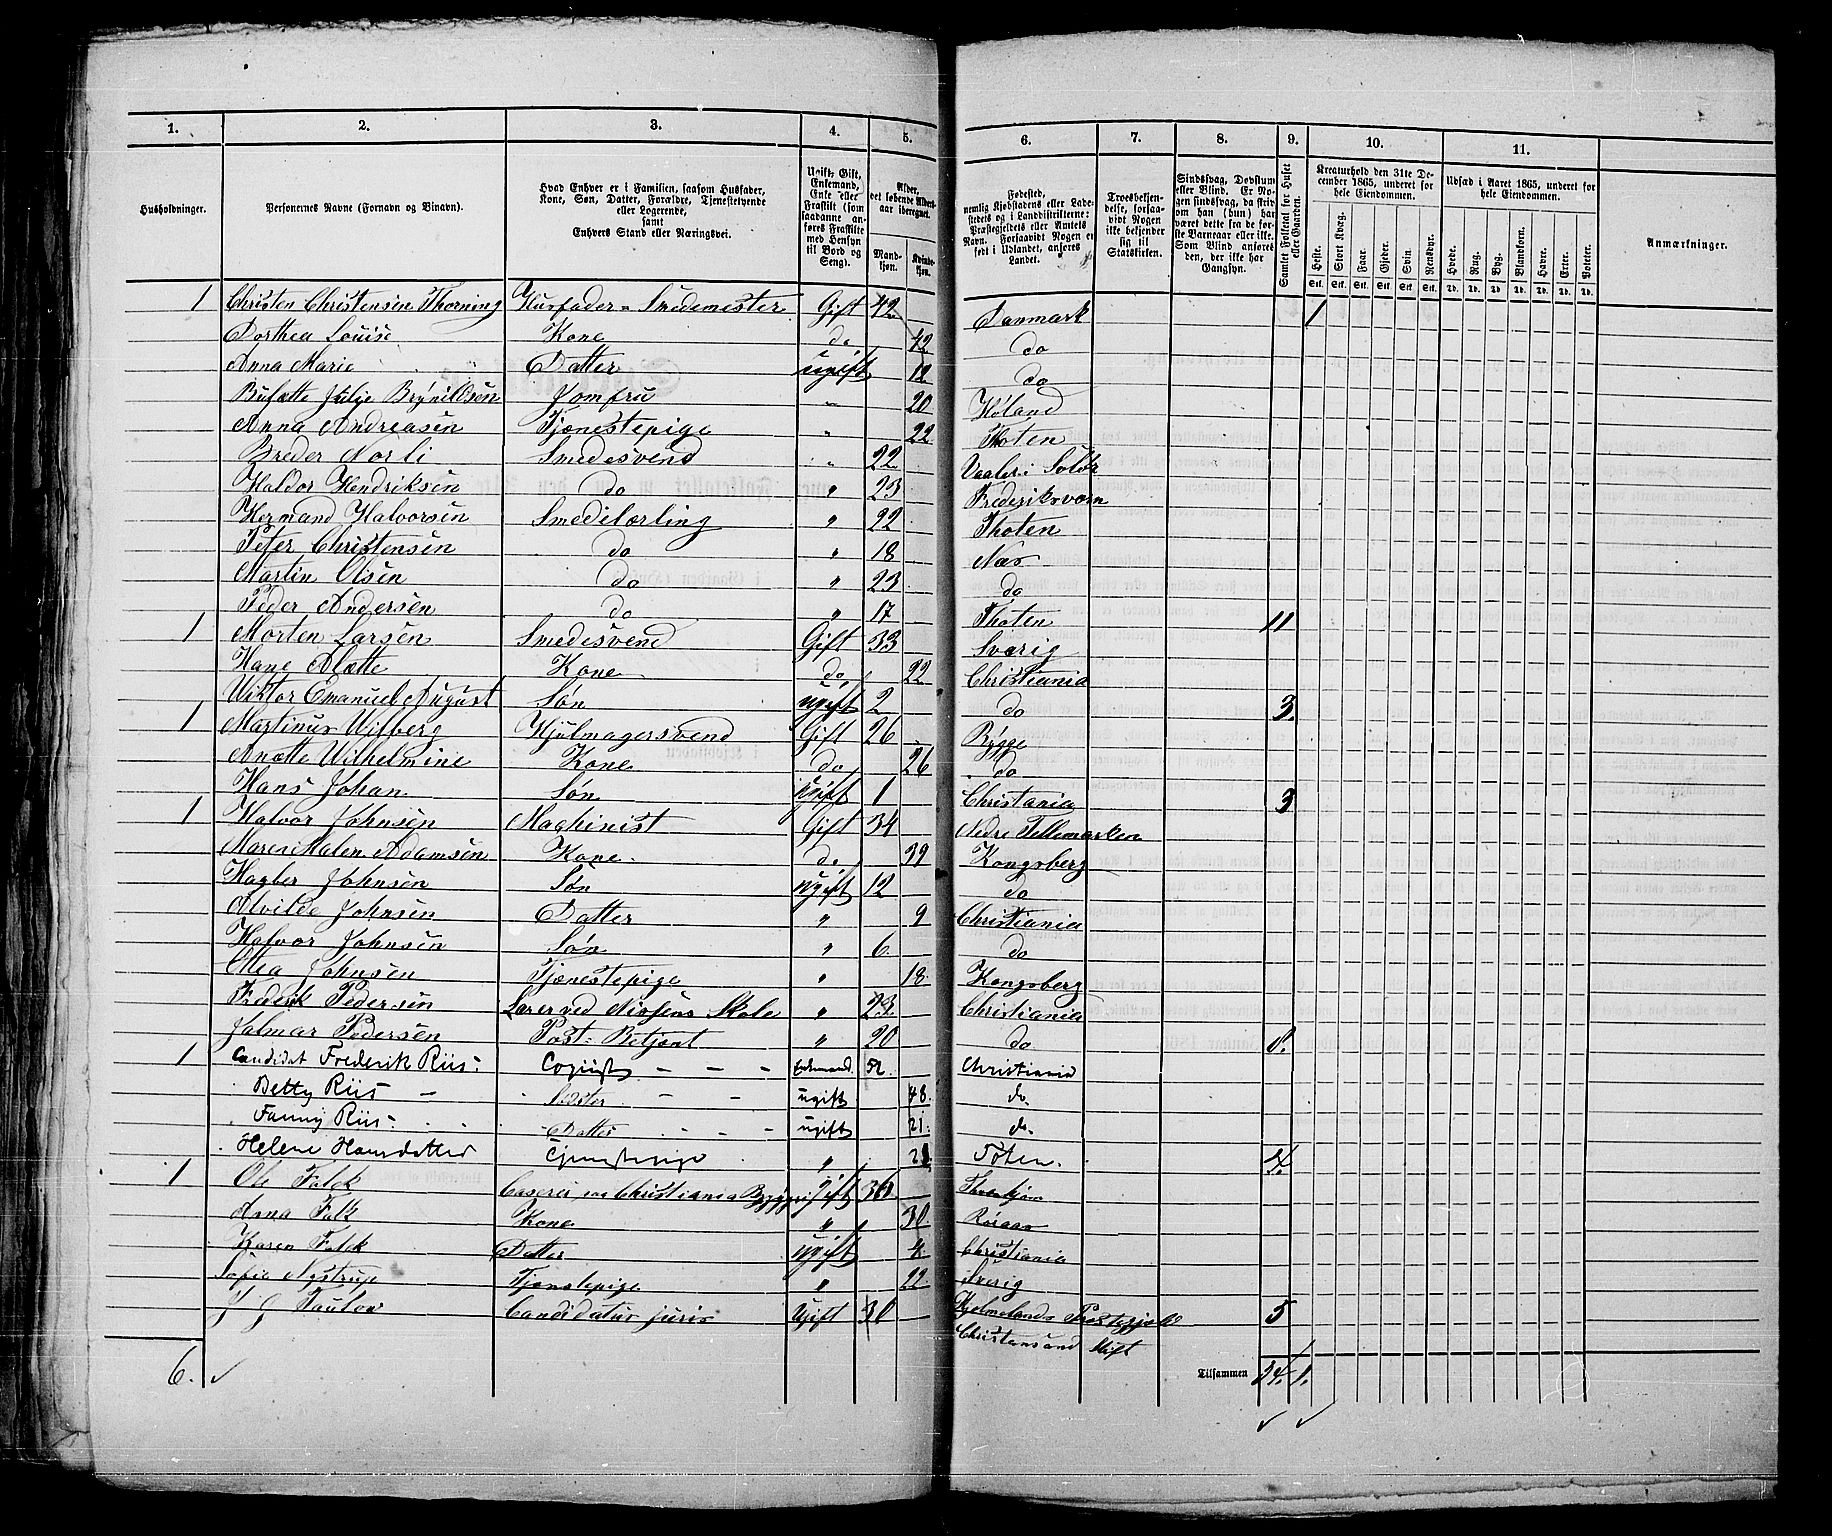 1. 2. 3. 4. 5. 6. 7. 8. 9. 10. 11.
Husholdninger.
Personernes Navne (Fornavn og Binavn).
Hvad Enhver er i Familien, saasom Husfader, Kone, Søn, Datter, Forældre, Tjenestetyende eller Logerende, samt Enhvers Stand eller Næringsvei.
Ugift, Gift, Enkemand, Enke eller Fraskilt (som saadanne anføres Fraskilte med Hensyn til Bord og Seng).
Alder, det løbende Aldersaar iberegnet.
Mandkjøn. Kvindekjøn.
Fødested, nemlig Kjøbstadens eller Ladestedets og i Landdistrikterne: Præstegjeldets eller Amtets Navn. Forsaavidt Nogen er født i Udlandet, anføres Landet.
Troesbekjendelse, forsaavidt Nogen ikke bekjender sig til Statskirken.
Sindssvag, Døvstum eller Blind. Er Nogen sindssvag, da skriv om han (hun) har været dette fra de første Barneaar eller ikke. Som Blind anføres den, der ikke har Gangsyn.
Samlet Folketal for Huset eller Gaarden.
Kreaturhold den 31te December 1865, underet for hele Eiendommen.
Heste. Stort Kvæg. Faar. Gjeder. Svin. Rensdyr.
Stk. Stk. Stk. Stk. Stk. Stk.
Udsæd i Aaret 1865, underet for hele Eiendommen.
Hvede. Rug. Byg. Blandkorn. Havre. Erter. Poteter.
Td. Td. Td. Td. Td. Td. Td.
Anmærkninger.
1 Christen Christensen Thorning Husfader = Smedemester Gift 42 Danmark 1
Dorthea Louise Kone do 42 do
Anna Marie Datter ugift 12 do
Julie Brynildsen Jomfru " 20 Høland
Anna Andreasen Tjenestepige " 22 Thoten
Breder Norli Smedesvend " 22 Vaaler i Solør
Haldor Hendriksen do " 23 Frederiksværn
Hermand Halvorsen Smedilærling " 22 Thoten
Peter Christensen do " 18 Næs
Martin Olsen do " 23 do
Peder Andersen do " 17 Thoten 11
1 Morten Larsen Smedesvend Gift 33 Sværig
Hane Alette Kone do 22 Christiania
Wiktor Emanuel August Søn ugift 2 do 3.
1 Martinus Wifberg Hjulmagersvend Gift 26 Rygge
Anætte Wilhelmine Kone do 26 do
Hans Johan Søn ugift 1 Christania 3
1 Halvor Johnsen Maskinist Gift 34 Nedre Tellemarken
Maren Malen Adamsen Kone do 39 Kongsberg
Hagber Johnsen Søn ugift 12 do
Alvilde Johnsen Datter " 9 Christiania
Halvor Johnsen Søn " 6. do
Othea Johnsen Tjænestepige " 18 Kongsberg
Frederik Pedersen Lærer ved Nissens Skole " 23 Christiania
Jalmar Pedersen Post = Betjent " 20 do 8.
1 Candidat Frederik Riis Copiist - - - Enkemand 52 Christiania
Betty Riis - Søster - - - ugift 48. do.
Fanny Riis Datter - - ugift 21. do.
Helene Hansdatter Tjenestepige " Toten. 4.
1 Ole Falck Gift 36
Anna Falk Kone " 30. Røraas
Karen Falck Datter ugift 4. Christiania
Sofie Nystrup Tjenstepige " 22. Sverig
J J Taulow Candidatus juris Ugift 30 Hjelmelands Prestegjeld 5
Christansand Stift
6. ✓
Tilsammen 34. 1.
✓ ✓